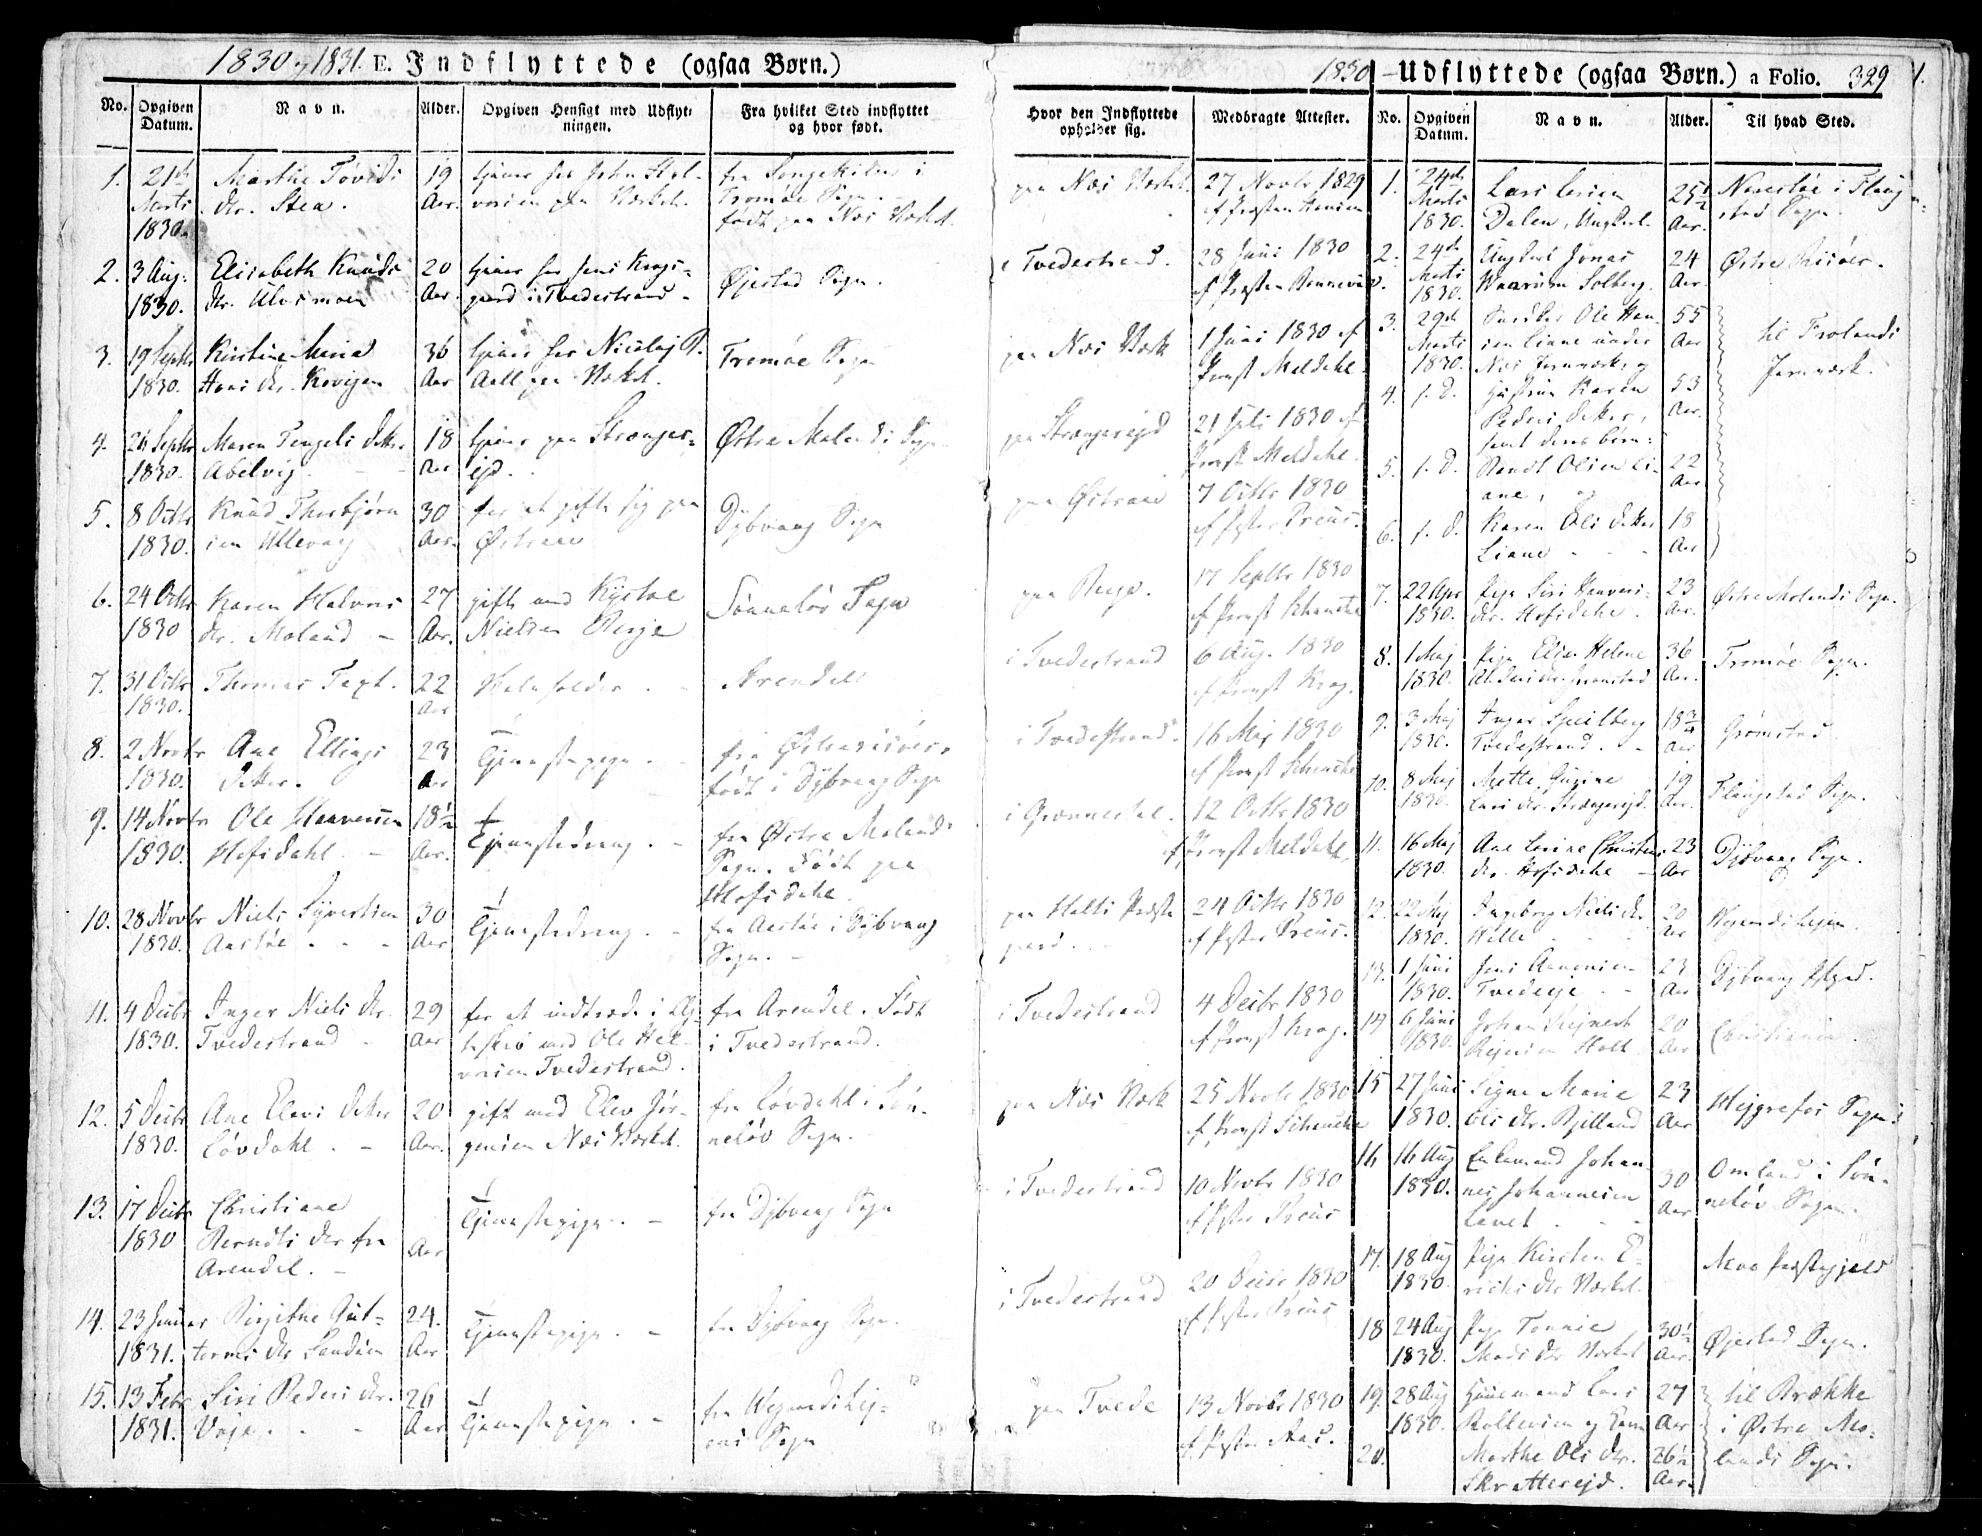 1830 og 1831. E. Indflyttede (ogsaa Børn.)
No. Opgiven Datum. Navn. Alder. Opgiven Hensigt med Udflytningen. Fra hvilket Sted indflyttet og hvor født.
Hvor den Indflyttede opholder sig. Medbragte Attester.
1. 21de Marts 1830.
Marthe Tovids
dr. Stea.
19 Aar.
tjener hos John Hal-
vorsen paa Værket.
fra Songekilen i
Tromøe Sogn.
født paa Næs Værket.
paa Næs Værket.
27 Novbr 1829
af Præsten Hansen
2. 3 Aug: 1830.
Elisabeth Knuds
dr. Ulvsmoen
20 Aar.
tjener hos Jens Krogs-
gaard i Tvedestrand -
Øjestad Sogn.
i Tvedestrand.
28 Juni 1830
af Præsten Bonnevie.
3. 19 Septbr 1830.
Kirstine Maria
Hans dr. Kovigen
36 Aar
tjener hos Nicolaj B.
Aall paa Værket.
Tromøe Sogn
paa Næs Værk
1 Juni 1830 af
Provst Meldahl.
4. 26 Septbr 1830.
Maren Tengels datter
Abelvig.
18 Aar
tjener paa Strænges-
ejd.
Østre Molands Sogn
paa Strængerejd
21 Juli 1830 af
Provst Meldahl.
5. 8 Octbr 1830.
Knud Thorbjørn
sen Ullevaag
30 Aar.
for at gifte sig paa
Østraae
Dybvaag Sogn
paa Østraae
7 Octbr 1830
af Pastor Preus.
6. 24 Octbr 1830
Karen Halvors
dr. Moland -
27 Aar.
gift med Kystol
Nielsen Berge
Sønneløv Sogn
paa Berge.
17 Septbr 1830
af Provst Schanche
7. 31 Octbr 1830.
Thomas Fext.
22 Aar
Arendal
i Tvedestrand
6 Aug. 1830
af Provst Krog.
8. 2 Novbr 1830.
Ane Ellings
datter.
23 Aar
Tjenestepige. -
fra Østerrisøer,
født i Dybvaag Sogn
i Tvedestrand.
16 Maj 1830
af Provst Schanche
9. 14 Novbr 1830.
Ole Haavorsen
Hofsdahl. -
18½ Aar.
Tjenestedreng. -
fra Østre Molands
Sogn. Født paa
Hofsdahl.
i Grønnestøl.
12 Octbr 1830
af Provst Meldahl.
10. 28 Novbr 1830.
Niels Syvertsen
Aastøe - -
30 Aar
Tjenestedreng. -
fra Aastøe i Dybvaag
Sogn. -
paa Holts Præste
gaard.
24 Octbr 1830
af Pastor Preus.
11. 4 Decbr 1830.
Inger Niels dr.
Tvedestrand -
29 Aar
for at indtræde i Æg-
teskab med Ole Hal-
vorsen Tvedestrand.
fra Arendal. Født
i Tvedestrand.
i Tvedestrand
4 Decbr 1830
af Provst Krog.
12. 5 Decbr 1830.
Ane Elevs datter
Løvdahl. -
20 Aar.
gift med Elev Jør-
gensen Næs Værket.
fra Løvdahl i Søn-
neløv Sogn.
paa Næs Værk
25 Novbr 1830
af Provst Schanche
13. 17 Decbr 1830
Christiane
Berndts dr fra
Arendal. -
Aar
Tjenestepige. -
fra Dybvaag Sogn
i Tvedestrand
10 Novbr 1830
af Pastor Preus
14. 23 Januar 1831.
Birgithe Gut-
torms dr Sandøen
24. Aar
Tjenestepige. -
fra Dybvaag Sogn.
i Tvedestrand
20 Decbr 1830
af Pastor Preus
15. 13 Febr 1831.
Siri Peders dr.
Voje. - -
26 Aar
Tjenestepige. -
Sogn
paa Tvede
13 Novbr 1830
1830 - Udflyttede (ogsaa Børn.) a Folio. 329
No. Opgiven Datum. Navn. Alder. Til hvad Sted.
1. 24de Marts 1830.
Lars Larsen
Dalen, Ungkarl.
25½ Aar.
Naverstøe i Flaug-
stad Sogn.
2. 24de Marts 1830.
Ungkarl Jonas
Waarum Solberg.
24 Aar.
Østre Riisøer.
3. 29de Marts 1830.
Smedker Ole Han-
sen Liane under
Næs Jernværk, og
55 Aar
til Frolands
Jernværk.
4. s. D.
Hustrue Karen
Peders datter,
samt deres børn:
53 Aar.
5. s. D.
Berndt Olsen Li-
ane, og
22 Aar
6. s. D.
Karen Ols datter
Liane - -
18 Aar
7. 22 Apr 1830.
Pige Siri Haavors-
dr. Hofsdahl.
23 Aar.
Østre Molands Sogn.
8. 1 Maj 1830.
Pige Elise Helene
36 Aar.
Tromøe Sogn.
9. 3 Maj 1830.
Inger Speilberg
Tvedestrand. -
18¾ Aar
Grømstad.
10. 8 Maj 1830.
Mette Gurine
Lars dr. Strængerejd.
19 Aar.
Flaugstad Sogn.
11. 16 Maj 1830.
Ane Lorine Christens
dr. Hofsdahl -
23 Aar
Dybvaag Sogn.
12. 22 Maj 1830.
Ingeborg Niels dr
Hille
20 Aar
13. 1 Juni 1830.
Jens Aanensen
Tvedeeje -
23 Aar
Dybvaag
14 6 Juni 1830.
Johan Rejnert
Rejersen Holt
20 Aar
Christiania.
15 27 Juni 1830.
Signe Marie
Ols dr. Kjelland
23 Aar
Hejgrefos Sogn.
16 16 Aug 1830.
Enkemand Johan-
nes Johannesen
Lavet - -
30 Aar
Omland i Søn-
neløv Sogn.
17. 18 Aug 1830.
Pige Kirsten E-
richs dr Værket.
Moe Præstegjeld
18 24 Aug 1830.
Pige Tonnie
Mads dr Værket
30½ Aar.
Øjestad Sogn.
19. 28 Aug 1830.
Huusmand Lars
Rollevsen og Kone
27 Aar
til Brække
i Østre Mo-
lands Sogn.
20.
Marthe Ols dr.
Skratterejd.
26½ Aar.